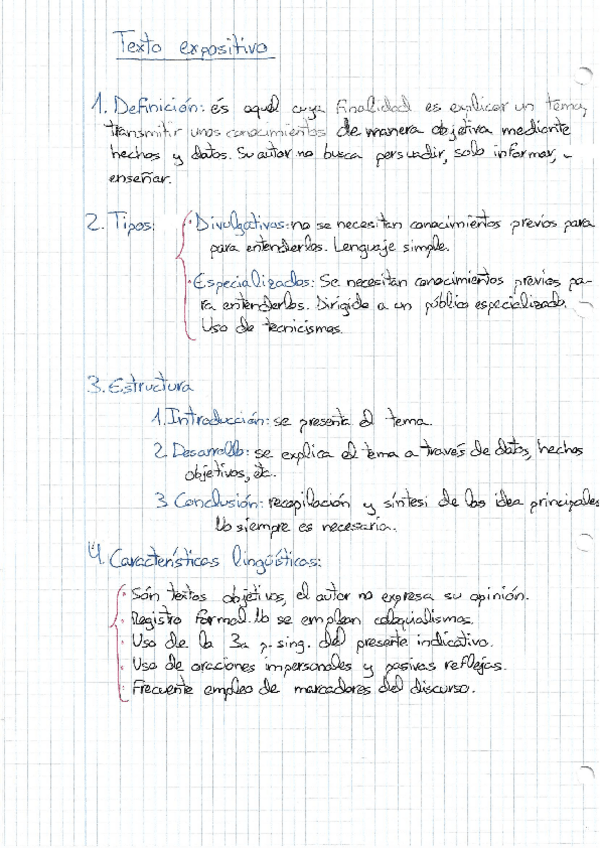 Texto expositivo
1. Definición: és aquél cuya finalidad es explicar un tema,
transmitir unos conocimientos de manera objetiva mediante
hechos y datos. Su autor no busca persuadir, solo informar,
enseñar.
2. Tipos: · Divulgativos: no se necesitan conocimientos previos para
para entenderlos. Lenguaje simple.
· Especializados: Se necesitan conocimientos previos pa-
ra entenderlos. Dirigido a un público especializado.
Uso de tecnicismos.
3. Estructura
1. Introducción: se presenta el tema.
2. Desarrollo: se explica el tema a través de datos, hechos
objetivos, etc.
3. Conclusión: recopilación y síntesi de las idea principales
No siempre es necesaria.
4. Características lingüísticas:
· Són textos objetivos, el autor no expresa su opinión.
· Registro formal. No se emplean coloquialismos.
· Uso de la 3a p. sing. del presente indicativo.
· Uso de oraciones impersonales y pasivas reflejas.
· Frecuente empleo de marcadores del discurso.